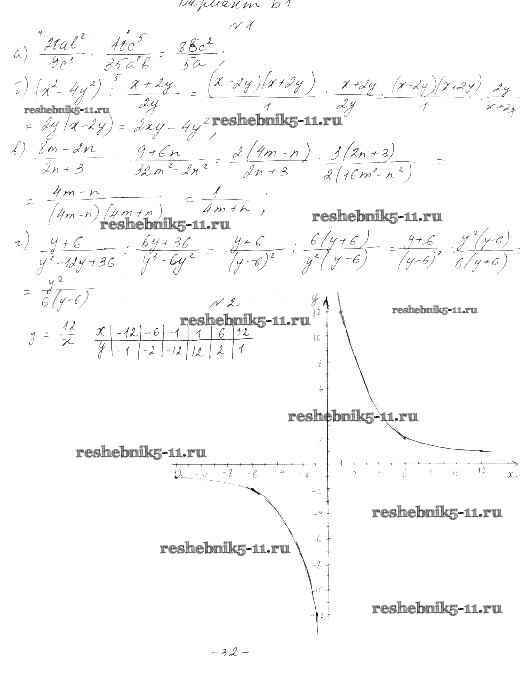 Вариант Б1
№1
а) · = ;
б) (x² - 4y²) : (x+2y)/2y = (x-2y)(x+2y)/1 : (x+2y)/2y = (x-2y)(x+2y)/1 · 2y/(x+2y) =
reshebnik5-11.ru
= 2y(x-2y) = 2xy - 4y²;
reshebnik5-11.ru
в) (8m-2n)/(2n+3) · = 2(4m-n)/(2n+3) · 3(2n+3)/2(16m²-n²) =
= (4m-n)/(4m-n)(4m+n) = 1/(4m+n);
reshebnik5-11.ru
reshebnik5-11.ru
г) (y+6)/(y²-12y+36) : (6y+36)/(y³-6y²) = (y+6)/(y-6)² : 6(y+6)/y²(y-6) = (y+6)/(y-6)² · y²(y-6)/6(y+6) =
= y²/6(y-6)
reshebnik5-11.ru
№2
reshebnik5-11.ru
y = 12/x
x | -12 | -6 | -1 | 1 | 6 | 12
y | -1 | -2 | -12 | 12 | 2 | 1
reshebnik5-11.ru
reshebnik5-11.ru
reshebnik5-11.ru
reshebnik5-11.ru
reshebnik5-11.ru
- 32 -